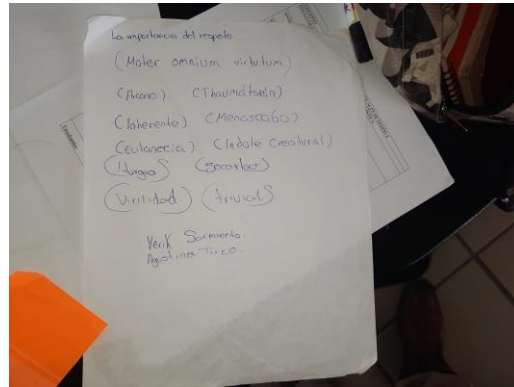 La importancia del respeto
(Mater omnium virtutum)
(Arcano) (Thaumátsein)
(Inherente) (Menoscabo)
(Eutanacia) (Indole Creatural)
(liturgia) (Escarbar)
(Virilidad) (trivial)
Yerik Sarmiento.
Agustinez Tirzo.